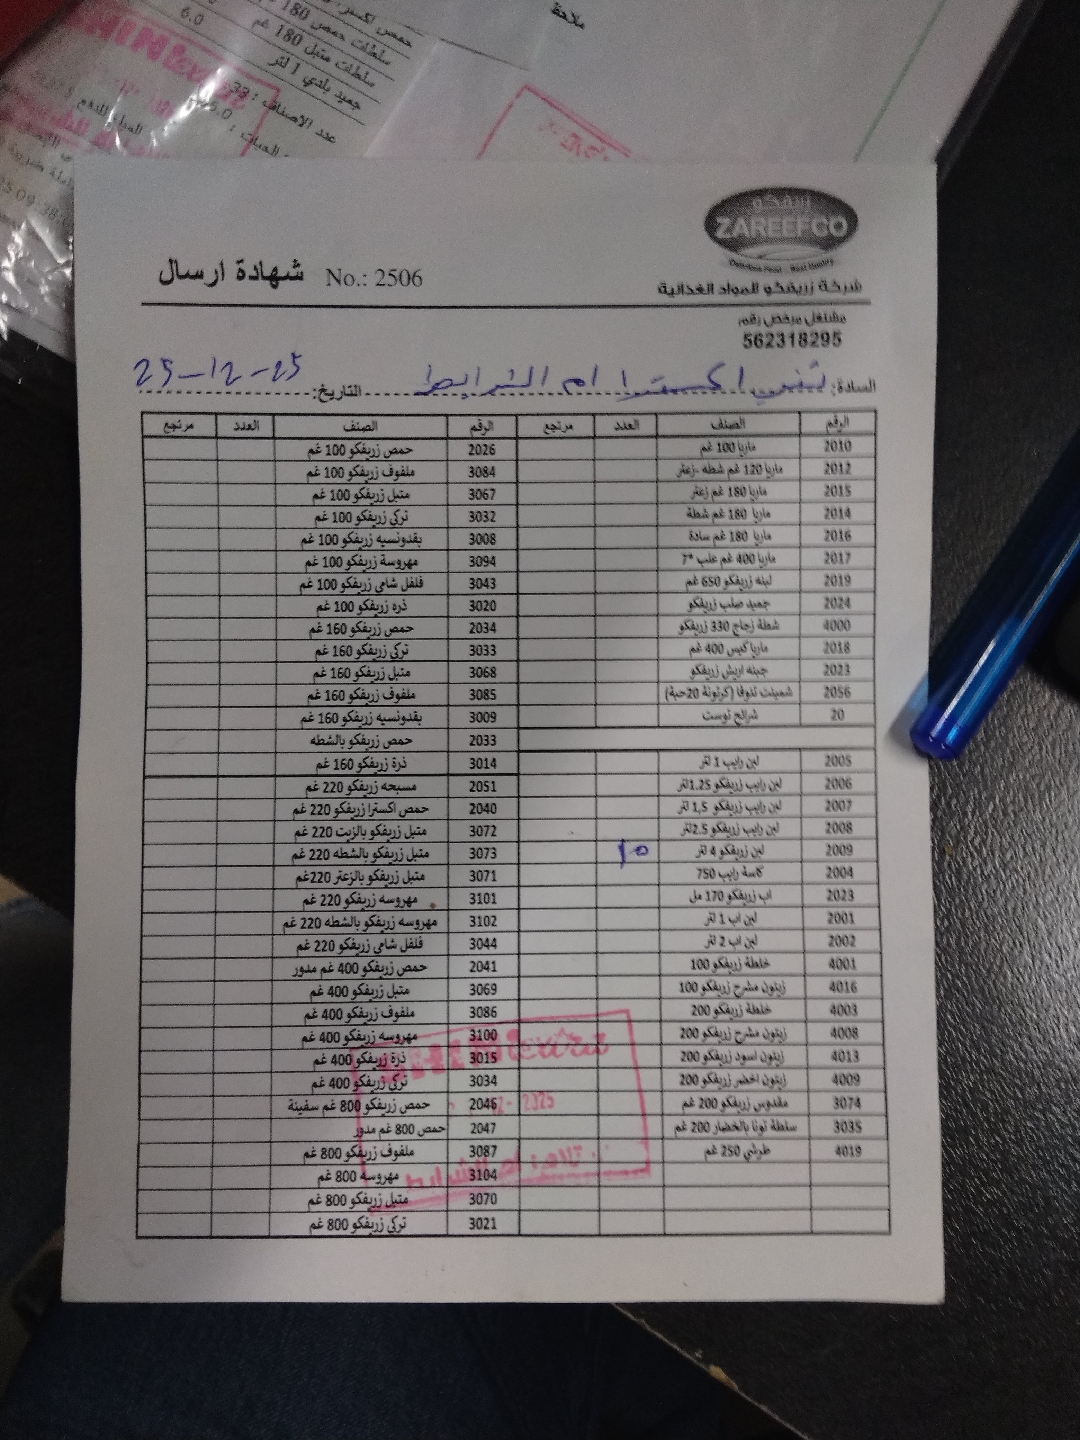 ملاحظ
سلطات حمص 180
سلطات متبل 180 غم
جميد بلدي 1 لتر
6.0
عدد الاصناف : 33
زريفكو
ZAREEFCO
شركة زريفكو للمواد الغذائية
شهادة ارسال No.: 2506
مشتغل مرخص رقم
562318295
السادة: تشنين اكسترا ام الشرايط التاريخ: 25-12-25
الرقم الصنف العدد مرتجع الرقم الصنف العدد مرتجع
2010 ماريا 100 غم 2026 حمص زريفكو 100 غم
2012 ماريا 120 غم شطه -زعتر 3084 ملفوف زريفكو 100 غم
2015 ماريا 180 غم زعتر 3067 متبل زريفكو 100 غم
2014 ماريا 180 غم شطة 3032 تركي زريفكو 100 غم
2016 ماريا 180 غم سادة 3008 بقدونسيه زريفكو 100 غم
2017 ماريا 400 غم علب *7 3094 مهروسة زريفكو 100 غم
2019 لبنه زريفكو 650 غم 3043 فلفل شامي زريفكو 100 غم
2024 جميد صلب زريفكو 3020 ذره زريفكو 100 غم
4000 شطة زجاج 330 زريفكو 2034 حمص زريفكو 160 غم
2018 ماريا كيس 400 غم 3033 تركي زريفكو 160 غم
2023 جبنه اريش زريفكو 3068 متبل زريفكو 160 غم
2056 شمينت تنوفا (كرتونة 20حبة) 3085 ملفوف زريفكو 160 غم
20 شرائح توست 3009 بقدونسيه زريفكو 160 غم
2033 حمص زريفكو بالشطه
2005 لبن رايب 1 لتر 3014 ذرة زريفكو 160 غم
2006 لبن رايب زريفكو 1.25لتر 2051 مسبحه زريفكو 220 غم
2007 لبن رايب زريفكو 1,5 لتر 2040 حمص اكسترا زريفكو 220 غم
2008 لبن رايب زريفكو 2.5لتر 3072 متبل زريفكو بالزيت 220 غم
2009 لبن زريفكو 4 لتر 10 3073 متبل زريفكو بالشطه 220 غم
2004 كاسة رايب 750 3071 متبل زريفكو بالزعتر 220غم
2023 اب زريفكو 170 مل 3101 مهروسه زريفكو 220 غم
2001 لبن اب 1 لتر 3102 مهروسه زريفكو بالشطه 220 غم
2002 لبن اب 2 لتر 3044 فلفل شامي زريفكو 220 غم
4001 خلطة زريفكو 100 2041 حمص زريفكو 400 غم مدور
4016 زيتون مشرح زريفكو 100 3069 متبل زريفكو 400 غم
4003 خلطة زريفكو 200 3086 ملفوف زريفكو 400 غم
4008 زيتون مشرح زريفكو 200 3100 مهروسه زريفكو 400 غم
4013 زيتون اسود زريفكو 200 3015 ذرة زريفكو 400 غم
4009 زيتون اخضر زريفكو 200 3034 تركي زريفكو 400 غم
3074 مقدوس زريفكو 200 غم 2046 حمص زريفكو 800 غم سفينة
3035 سلطة تونا بالخضار 200 غم 2047 حمص 800 غم مدور
4019 طرشي 250 غم 3087 ملفوف زريفكو 800 غم
3104 مهروسه 800 غم
3070 متبل زريفكو 800 غم
3021 تركي زريفكو 800 غم